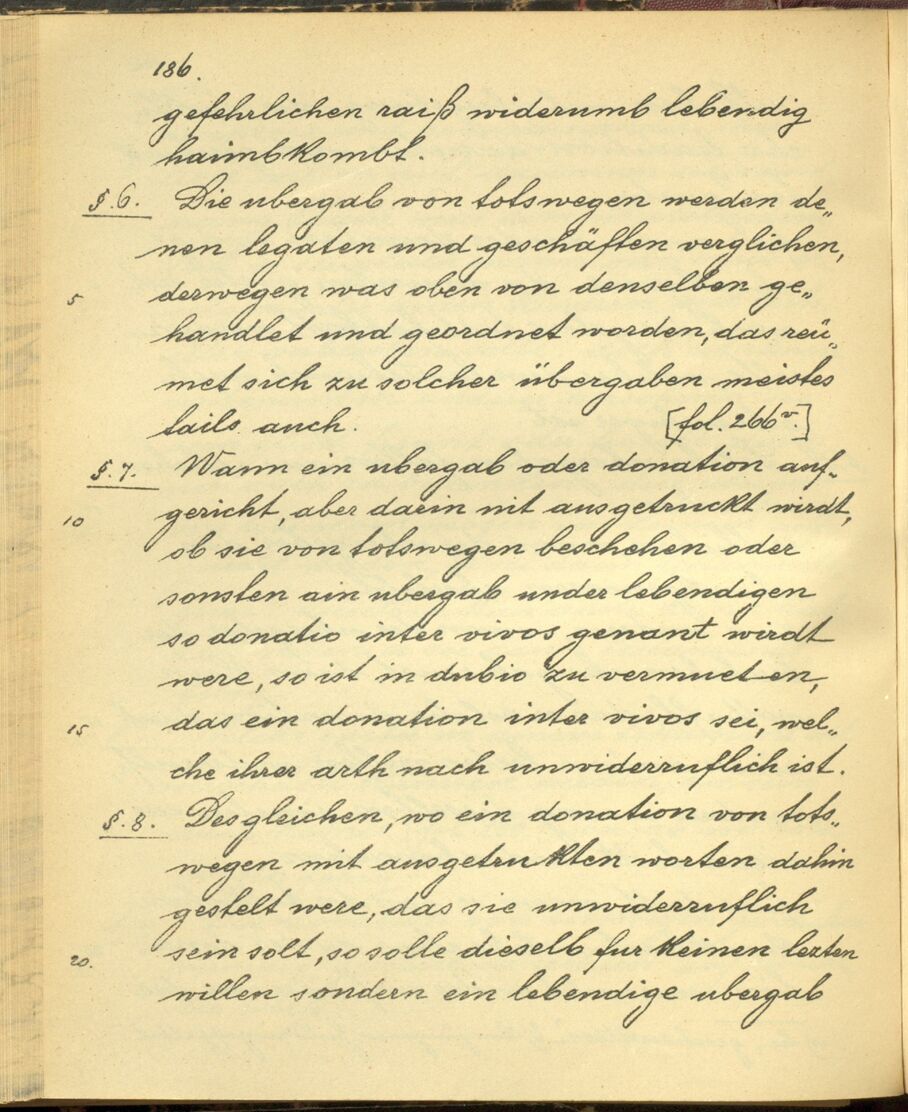 186.
gefehrlichen raiß widerumb lebendig
haimbkombt.
§.6. Die ubergab von totswegen werden de„
nen legaten und geschäften verglichen,
5 derwegen was oben von denselben ge„
handlet und geordnet worden, das reü„
met sich zu solcher übergaben meistes
tails auch. [fol. 266v.]
§.7. Wann ein ubergab oder donation auf„
10 gericht, aber darin nit ausgetruckt wirdt,
ob sie von totswegen beschehen oder
sonsten ain ubergab under lebendigen
so donatio inter vivos genant wirdt
were, so ist in dubio zu vermueten,
15 das ein donation inter vivos sei, wel„
che ihrer arth nach unwiderruflich ist.
§.8. Desgleichen, wo ein donation von tots„
wegen mit ausgetrukten worten dahin
gestelt were, das sie unwiderruflich
20. sein solt, so solle dieselb fur kleinen lezten
willen sondern ein lebendige ubergab